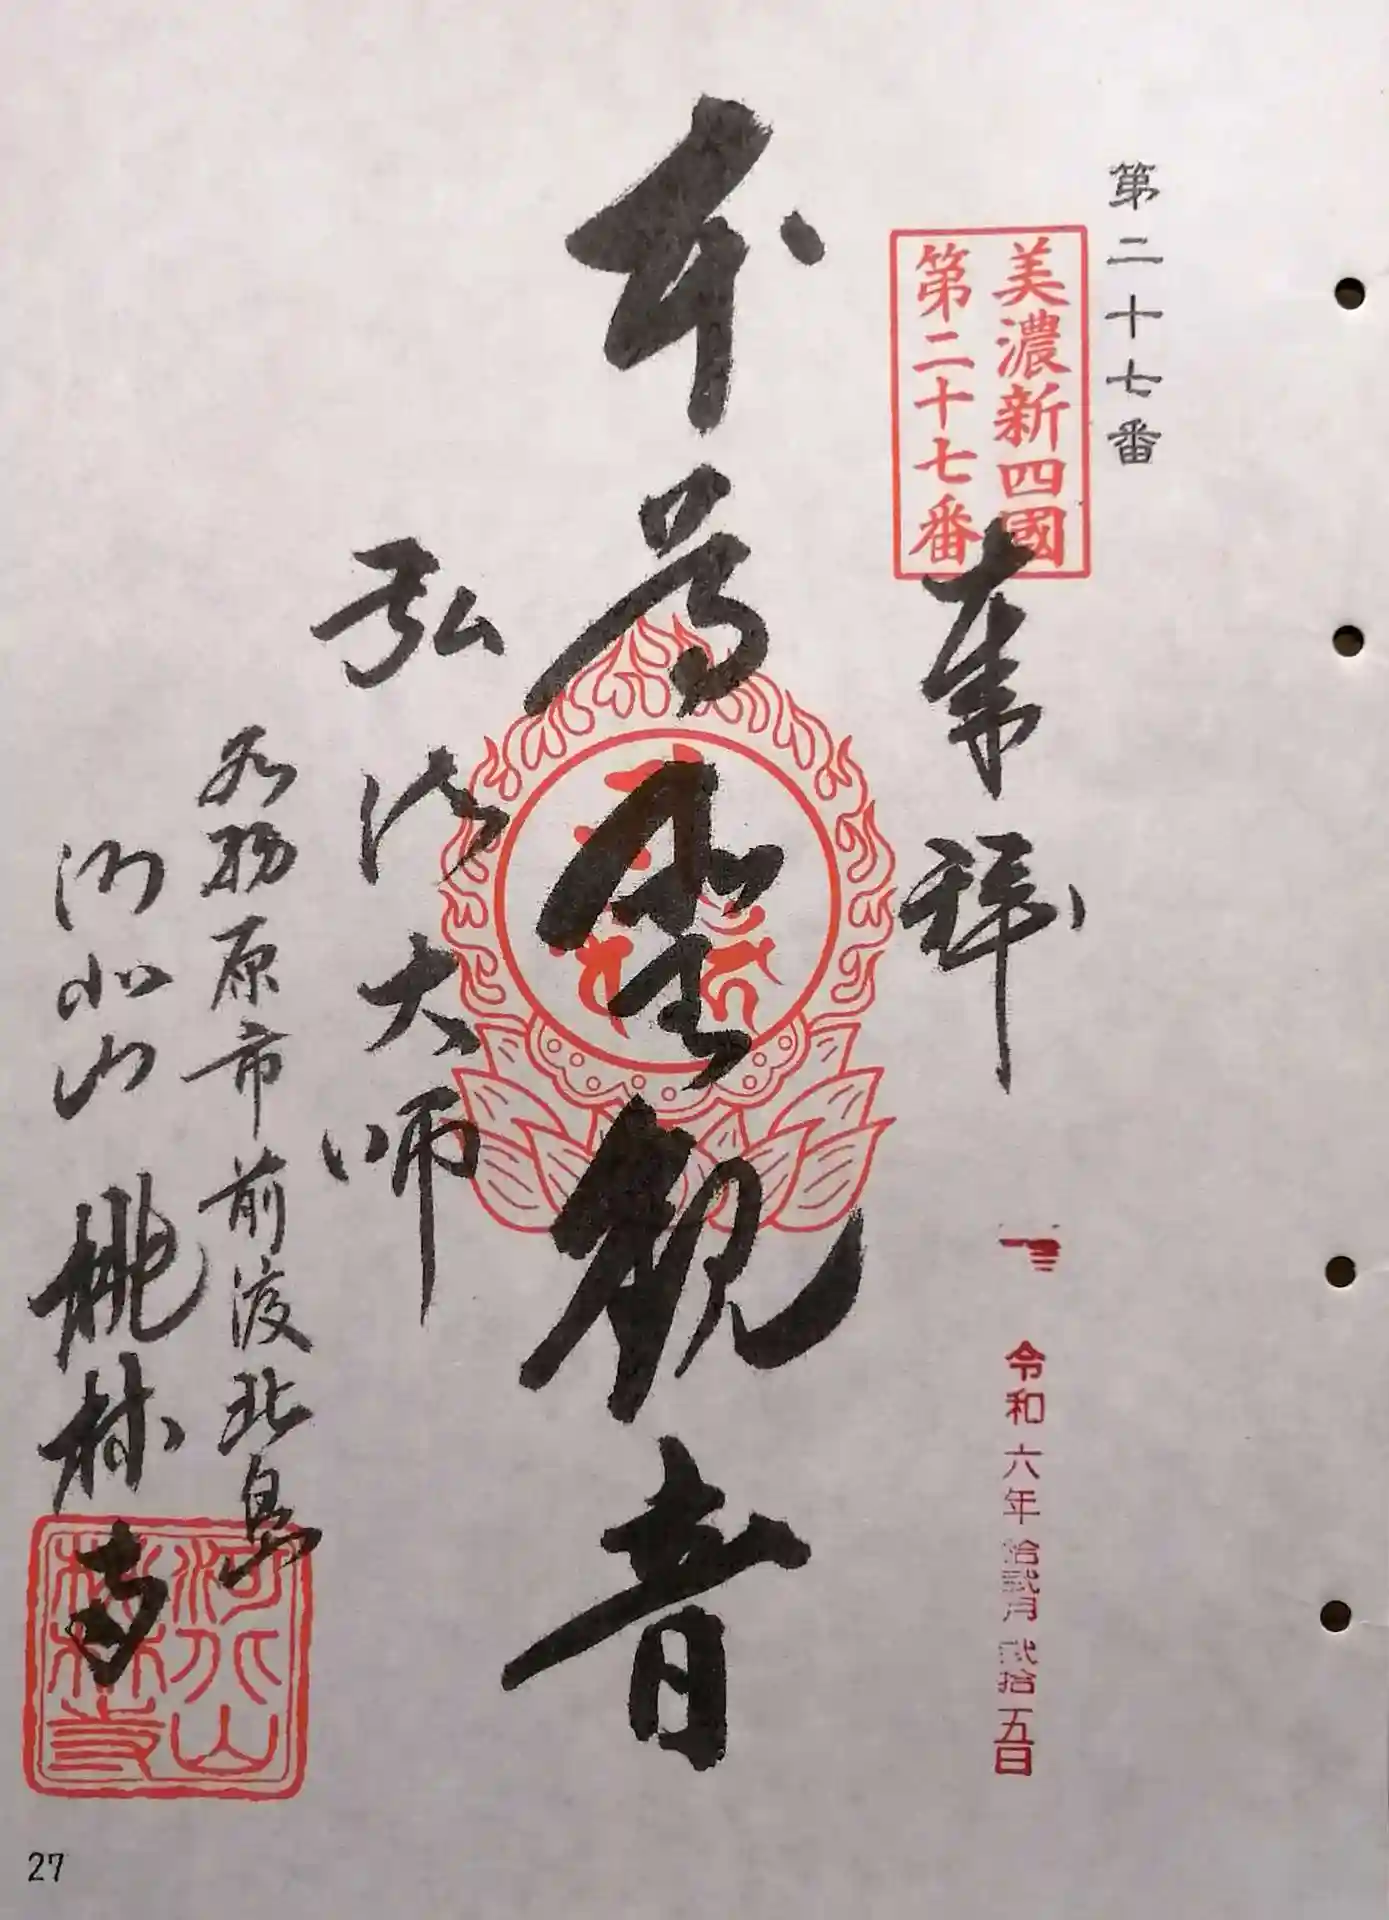 第二十七番
美濃新四國
第二十七番
奉拝
令和六年拾弐月弐拾五日
本尊聖観音
弘法大師
各務原市前渡北島
河北山 桃林寺
27